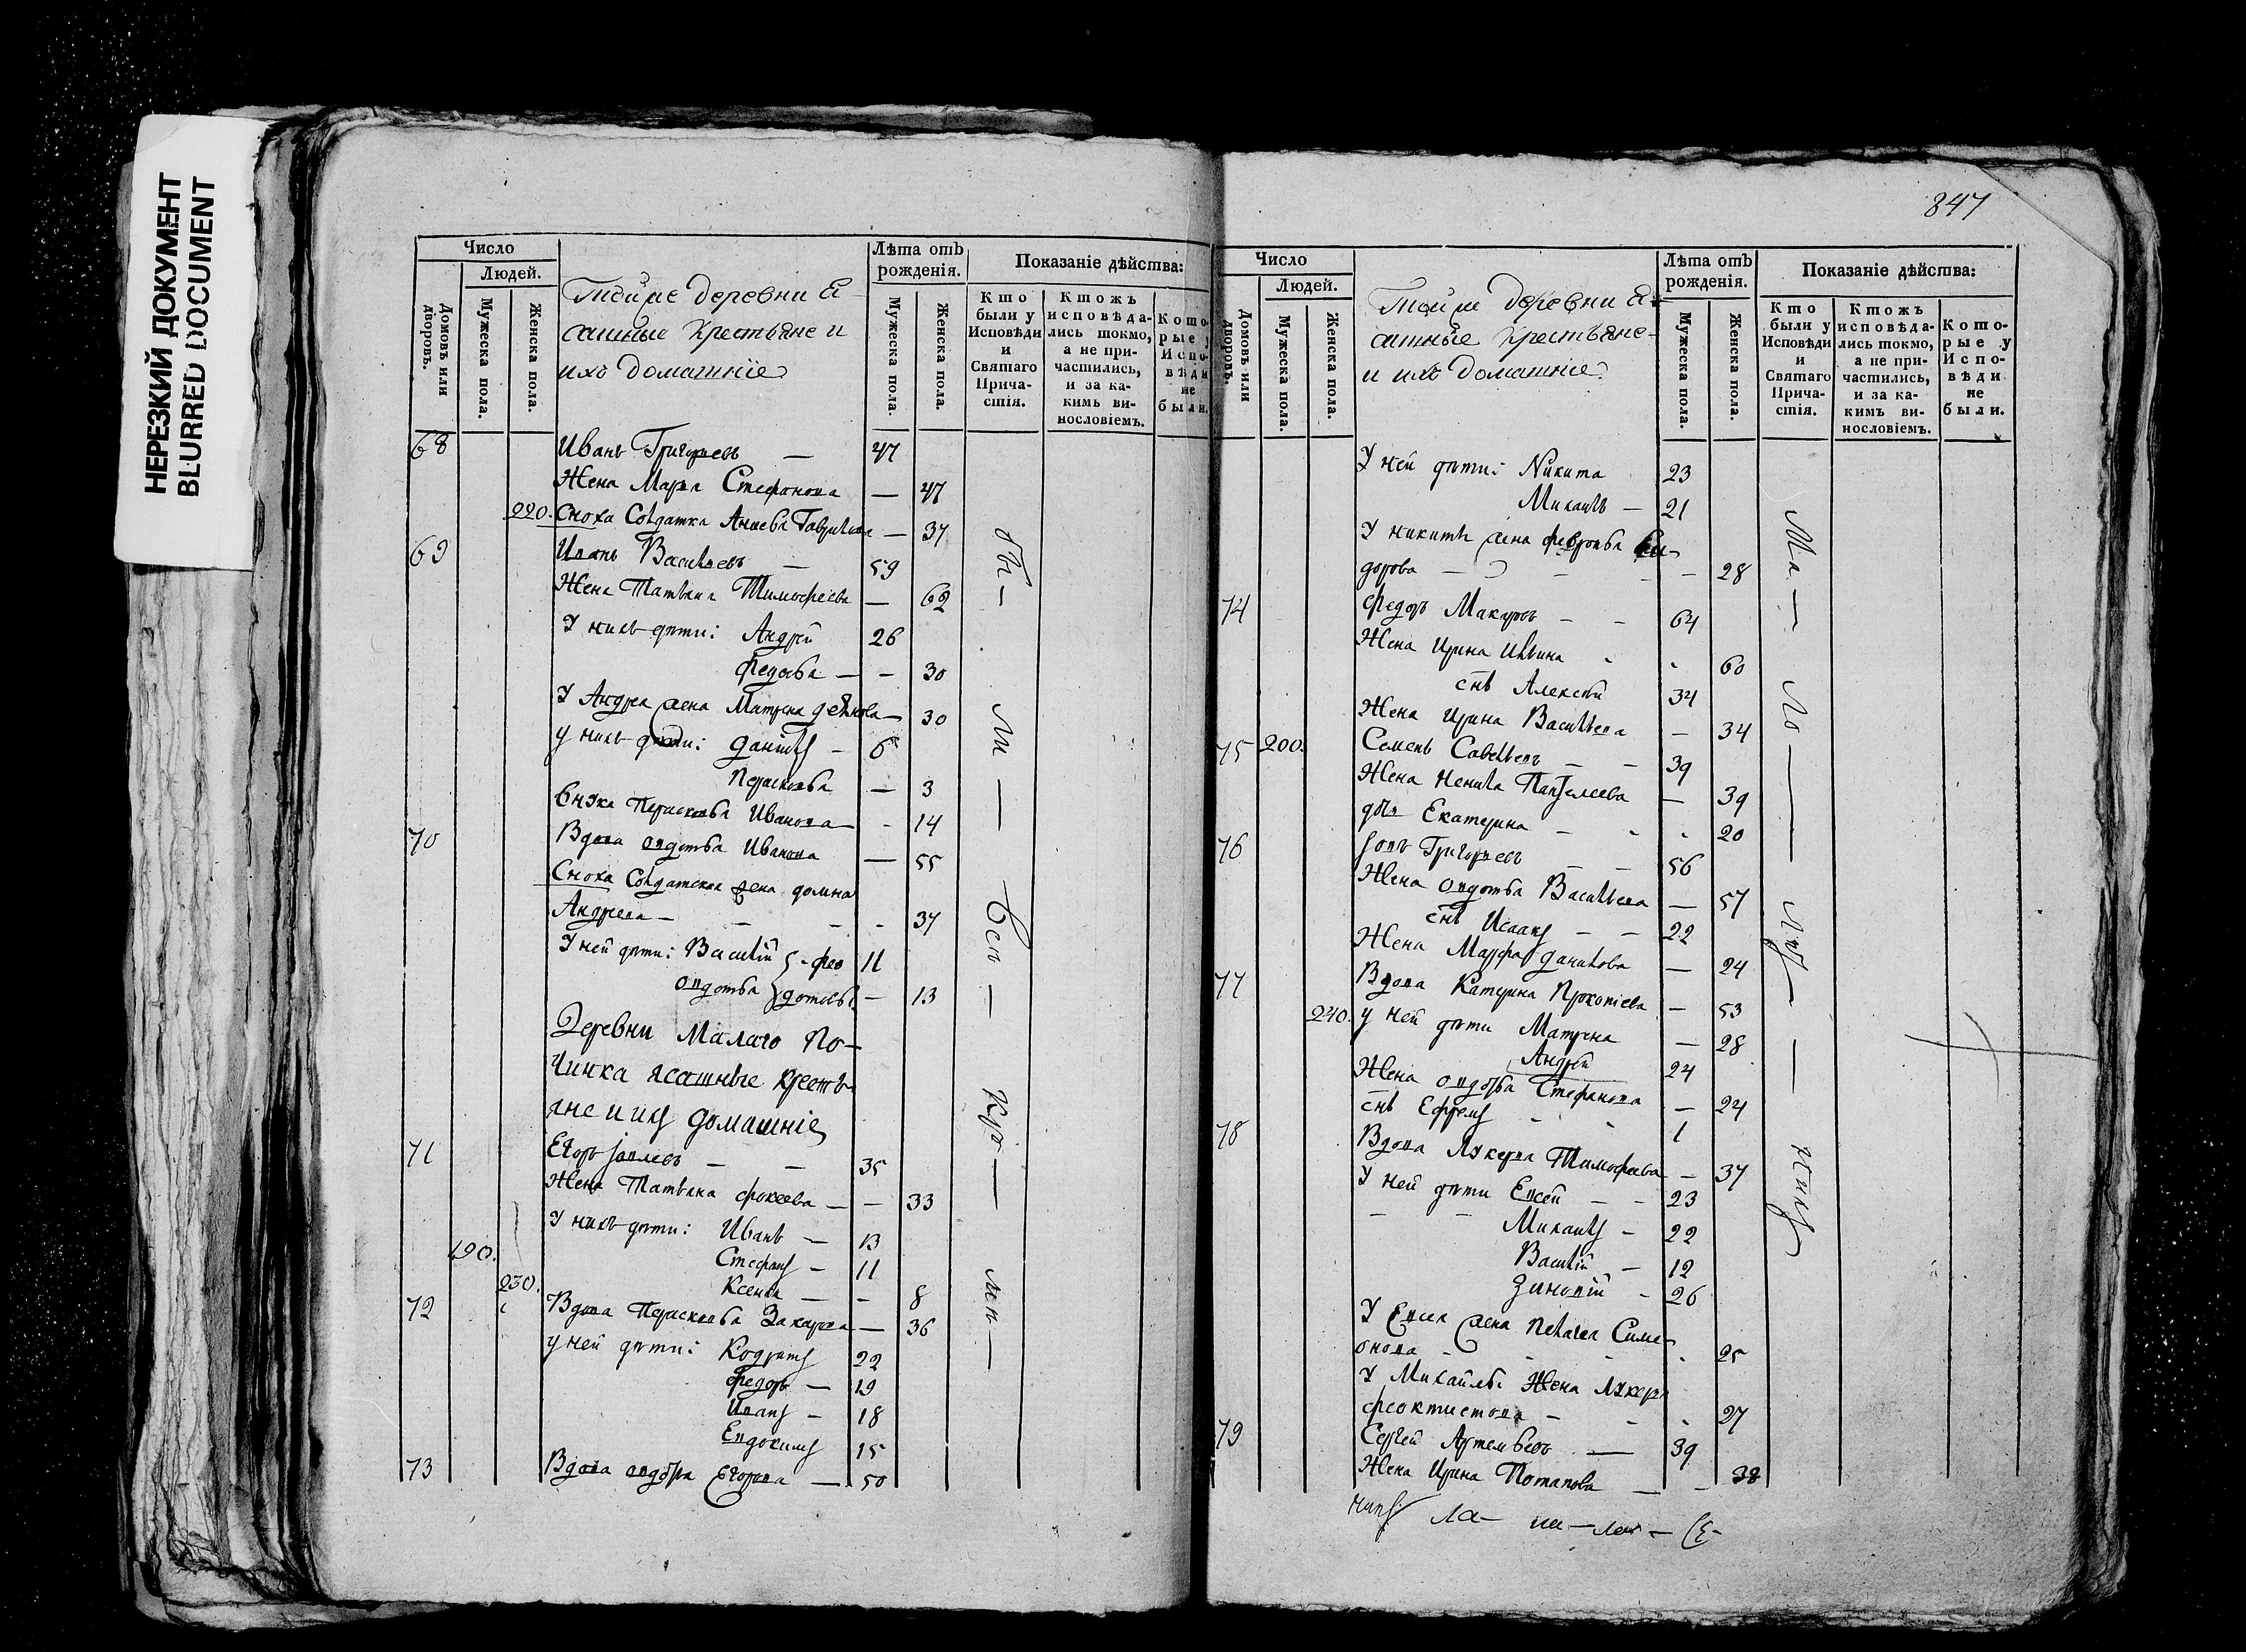 НЕРЕЗКИЙ ДОКУМЕНТ
BLURRED DOCUMENT
Число
Людей.
Домовъ или дворовъ.
Мужеска пола.
Женска пола.
Тойже деревни Я-
сашные крестьяне и
ихъ домашніе
Лѣта отъ рожденія.
Мужеска пола.
Женска пола.
Показаніе дѣйства:
Кто были у Исповѣди и Святаго Прича-стія.
Ктожъ исповѣда-лись токмо, а не при-частились, и за ка-кимъ ви-нословіемъ.
Кото-рые у Испо-вѣди не были.
68 Иванъ Григорьевъ — 47
Жена Марѳа Стефанова — 47
220. Сноха Солдатка Гаврилова — 37
69 Иванъ Васильевъ — 59
Жена Татьяна Тимофеева — 62
У нихъ дѣти: Андрей 26
Федосья — — 30
У Андрея жена Матрена — 30
у нихъ дѣти: Данилъ — 6
Перасковья — 3
Внука Перасковья Иванова — 14
70 Вдова Авдотья Иванова — 55
Сноха Солдатская жена Домна
Андреева — — — 37
У ней дѣти: Василій фео 11
Авдотья дотовы — 13
Деревни Малаго По-
чинка ясашные кресть-
яне и ихъ домашніе
71 Егоръ — — 35
Жена Татьяна Фокеева — — 33
У нихъ дѣти: Иванъ — 13
190. Стефанъ — 11
230. Ксенья — — 8
72 Вдова Перасковья Захарова — 36
у ней дѣти: Кодратъ 22
Федоръ — 19
Иванъ — 18
Евдокимъ 15
73 Вдова Авдотья Егорова — 50
Бы- ли — Всп — — —
847
Число
Людей.
Домовъ или дворовъ.
Мужеска пола.
Женска пола.
Тойже деревни Я-
сашные крестьяне
и ихъ домашніе
Лѣта отъ рожденія.
Мужеска пола.
Женска пола.
Показаніе дѣйства:
Кто были у Исповѣди и Святаго Прича-стія.
Ктожъ исповѣда-лись токмо, а не при-частились, и за ка-кимъ ви-нословіемъ.
Кото-рые у Испо-вѣди не были.
У ней дѣти: Никита 23
Михаилъ — 21
У никиты жена февронья Си-
дорова — — — 28
74 Федоръ Макаровъ — — 64
Жена Ирина Ильина 60
снъ Алексѣй 34
Жена Ирина Васильева — 34
75 200. Семенъ Савельевъ — — 39
Жена Ненила Пантелеева — 39
дщь Екатерина — 20
76 Григорьевъ — — 56
Жена Авдотья Васильева — 57
снъ Исаакъ — — 22
Жена Марфа Данилова — 24
77 Вдова Катерина Прокопіева — 53
240. у ней дѣти Матрена — 28
Андрей 24
Жена Авдотья Стефанова — 24
снъ Ефремъ 1
78 Вдова Лукерья Тимофеева — 37
У ней дѣти Евсей — — 23
Михаилъ — 22
Василій — 12
Зиновій — 26
У Евсея жена Пелагея Симе-
онова — 25
У Михайлы Жена Лукерья
Феоктистова — 27
79 Сергей Артемьевъ — 39
Жена Ирина Потапова — — 38